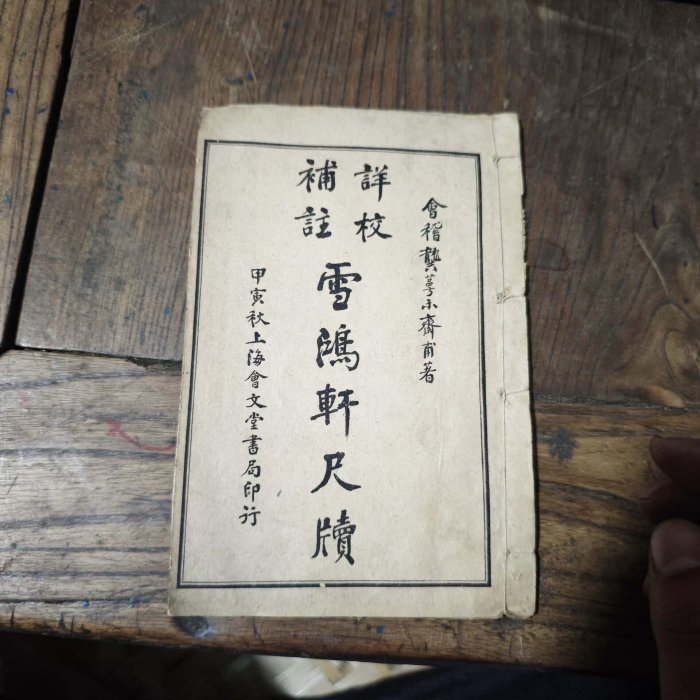 會稽龔萼未齋甫著
詳校
補註
雪鴻軒尺牘
甲寅秋上海會文堂書局印行